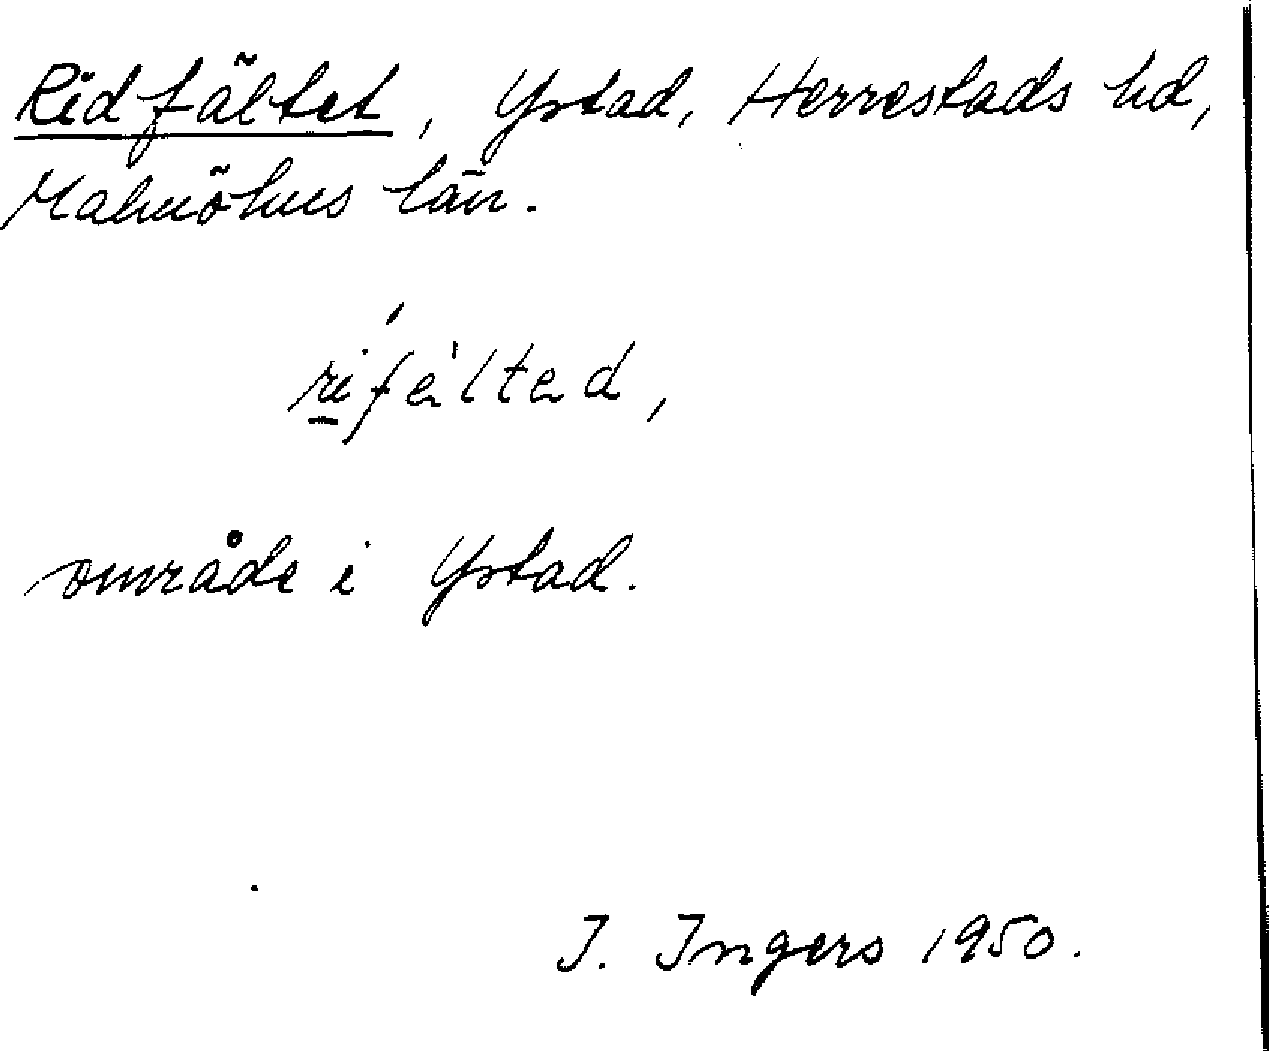 Ridfältet, Ystad, Herrestads hd,
Malmöhus län.
rifélted,
område i Ystad.
I. Ingers 1950.